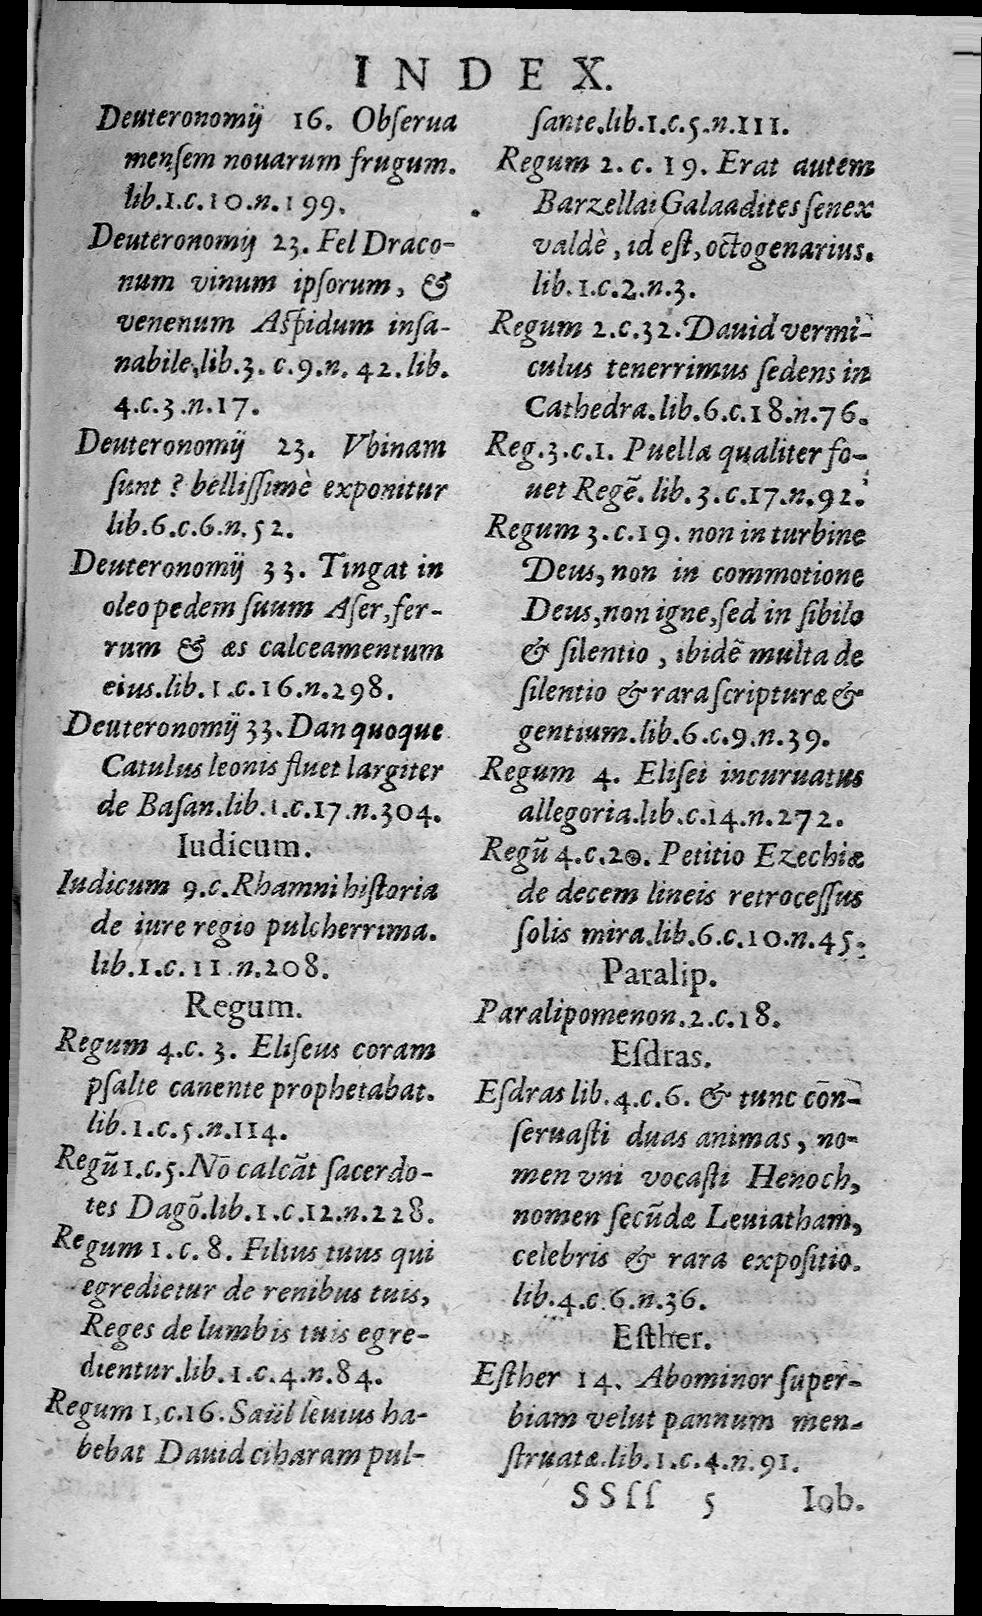 INDEX.
Deuteronomij 16. Obſerua
menſem nouarum frugum.
lib.1.c.10.n.199.
Deuteronomij 23. Fel Draco-
num vinum ipſorum, &
venenum Aſpidum inſa-
nabile,lib.3. c.9.n. 42. lib.
4.c.3.n.17.
Deuteronomij 23. Vbinam
ſunt ? belliſſimè exponitur
lib.6.c.6.n.52.
Deuteronomij 33. Tingat in
oleo pedem ſuum Aſer, fer-
rum & æs calceamentum
eius.lib.1.c.16.n.298.
Deuteronomij 33. Dan quoque
Catulus leonis fluet largiter
de Baſan.lib.1.c.17.n.304.
Iudicum.
Iudicum 9.c.Rhamni hiſtoria
de iure regio pulcherrima.
lib.1.c.11.n.208.
Regum.
Regum 4.c. 3. Eliſeus coram
pſalte canente prophetabat.
lib.1.c.5.n.114.
Regū 1.c.5.Nō calcāt ſacerdo-
tes Dagō.lib.1.c.12.n.228.
Regum 1.c.8. Filius tuus qui
egredietur de renibus tuis,
Reges de lumbis tuis egre-
dientur.lib.1.c.4.n.84.
Regum 1,c.16. Saül lèuius ha-
bebat Dauid ciharam pul-
ſante.lib.1.c.5.n.111.
Regum 2.c. 19. Erat autem
Barzellai Galaadites ſenex
valdè, id eſt, octogenarius.
lib.1.c.2.n.3.
Regum 2.c.32. Dauid vermi-
culus tenerrimus ſedens in
Cathedra.lib.6.c.18.n.76.
Reg.3.c.1. Puellæ qualiter fo-
uet Regē. lib.3.c.17.n.92.
Regum 3.c.19. non in turbine
Deus, non in commotione
Deus,non igne,ſed in ſibilo
& ſilentio, ibidē multa de
ſilentio & rara ſcripturæ &
gentium.lib.6.c.9.n.39.
Regum 4. Eliſei incuruatus
allegoria.lib.c.14.n.272.
Regū 4.c.20. Petitio Ezechiæ
de decem lineis retroceſſus
ſolis mira.lib.6.c.10.n.45.
Paralip.
Paralipomenon.2.c.18.
Eſdras.
Eſdras lib.4.c.6. & tunc cōn-
ſeruaſti duas animas, no-
men vni vocaſti Henoch,
nomen ſecūdæ Leuiatham,
celebris & rara expoſitio.
lib.4.c.6.n.36.
Eſther.
Eſther 14. Abominor ſuper-
biam velut pannum men-
ſtruatæ.lib.1.c.4.n.91.
SSſſ 5 Iob.